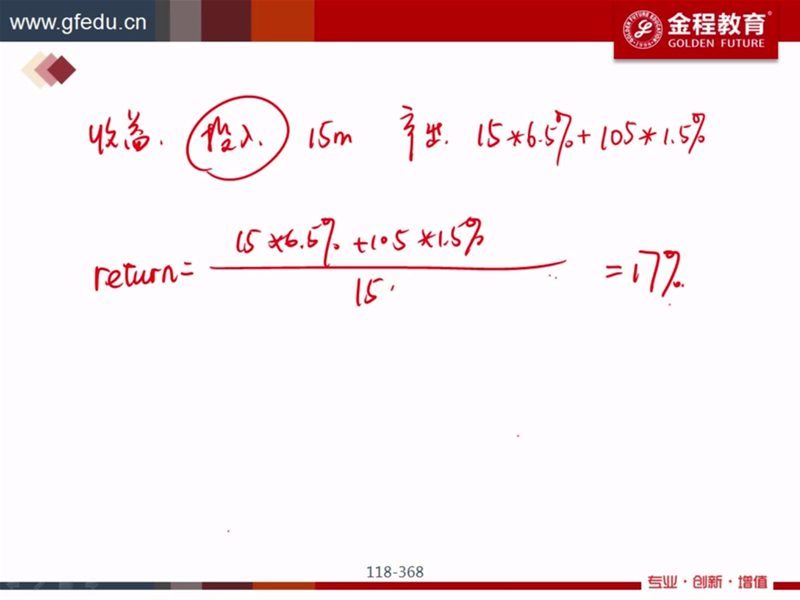 www.gfedu.cn
金程教育®
GOLDEN FUTURE
收益. 投入. 15m 产出. 15*6.5%+105*1.5%
15*6.5%+105*1.5%
return= =17%
15
118-368
专业·创新·增值